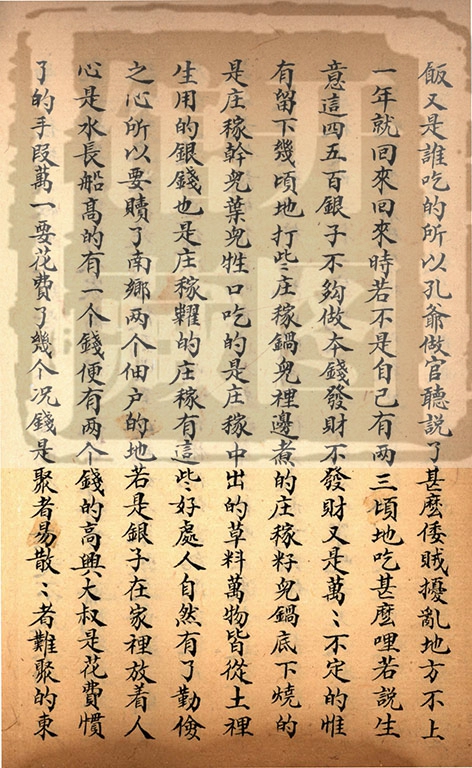 飯又是誰吃的所以孔爺做官聽説了甚麽倭賊擾亂地方不上
一年就回來回來時若不是自己有兩三頃地吃甚麽哩若説生
意這四五百銀子不夠做本錢發財不發財又是萬〻不定的惟
有留下幾頃地打些庄稼鍋兒裡邊煮的庄稼籽兒鍋底下燒的
是庄稼幹兒葉兒牲口吃的是庄稼中出的草料萬物皆從土裡
生用的銀錢也是庄稼糶的庄稼有這些好處人自然有了勤儉
之心所以要贖了南鄉两个佃户的地若是銀子在家裡放着人
心是水長船髙的有一个錢便有两个錢的高興大叔是花費慣
了的手叚萬一要花費了幾个况錢是聚者易散〻者難聚的東